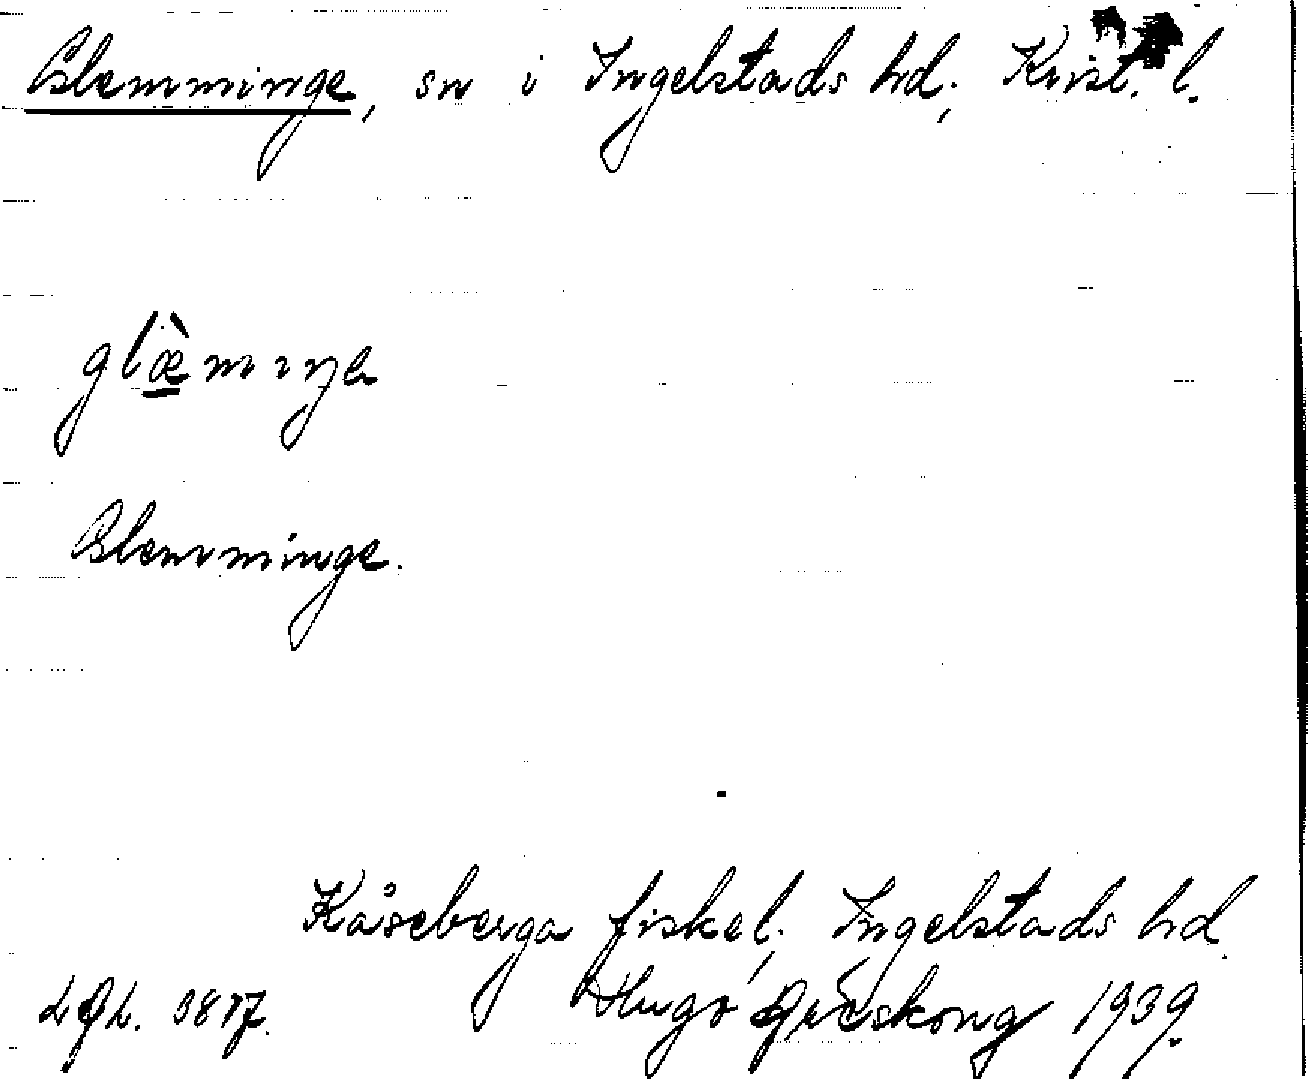 Glemminge, sn i Ingelstads hd, Krist. l.
glæ̀mıŋə
Glemminge.
Kåseberga fiskel., Ingelstads hd.
Hugo Areskoug 1939.